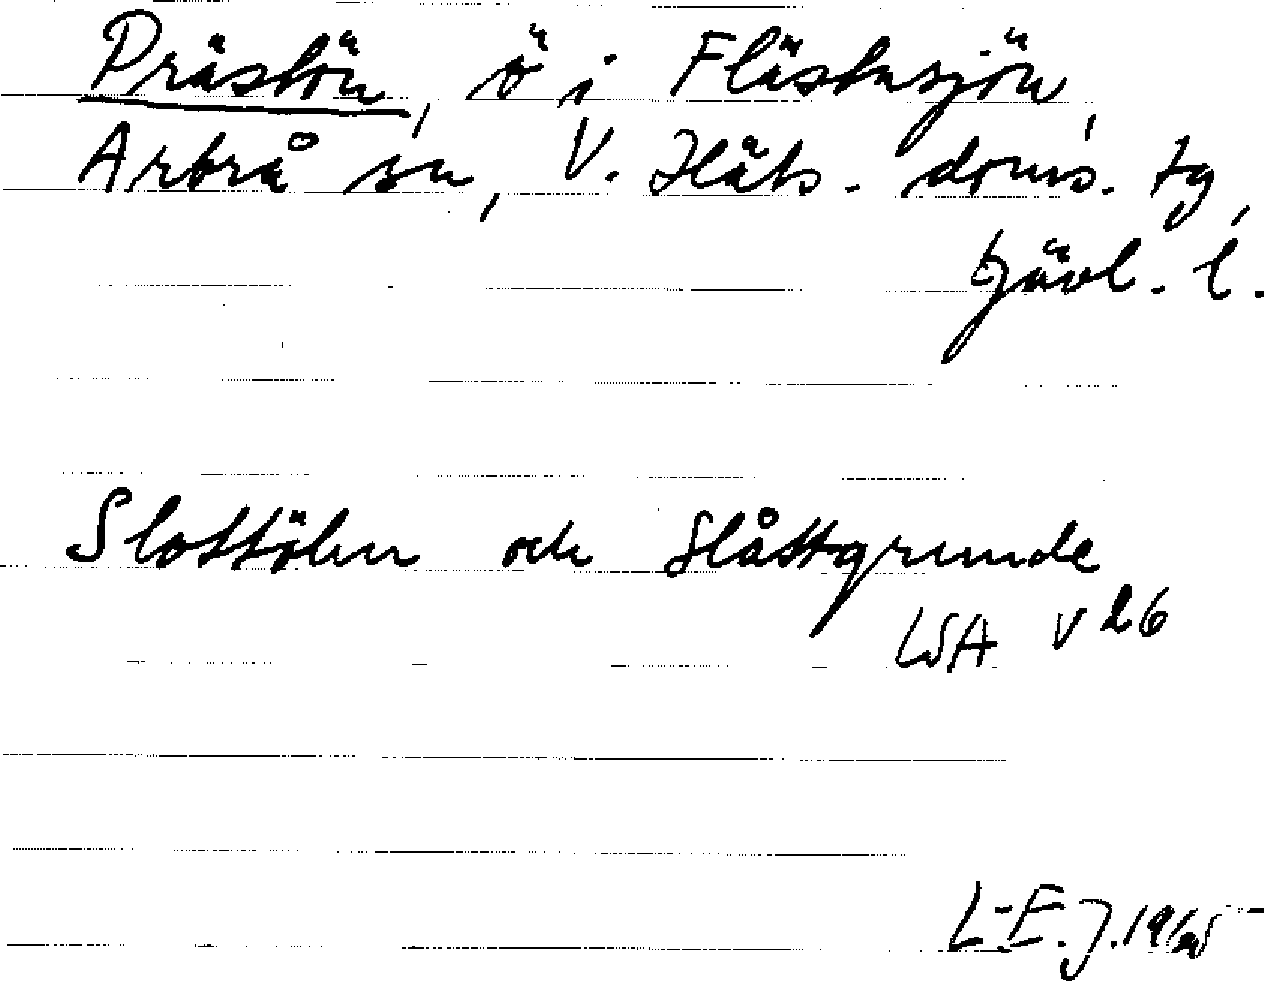 Prästön, ö i Flästasjön,
Arbrå sn, V. Häls. doms. tg,
Gävl. l.
Slottölen och Slåttgrunde
LSA V 26
L-E. J. 19